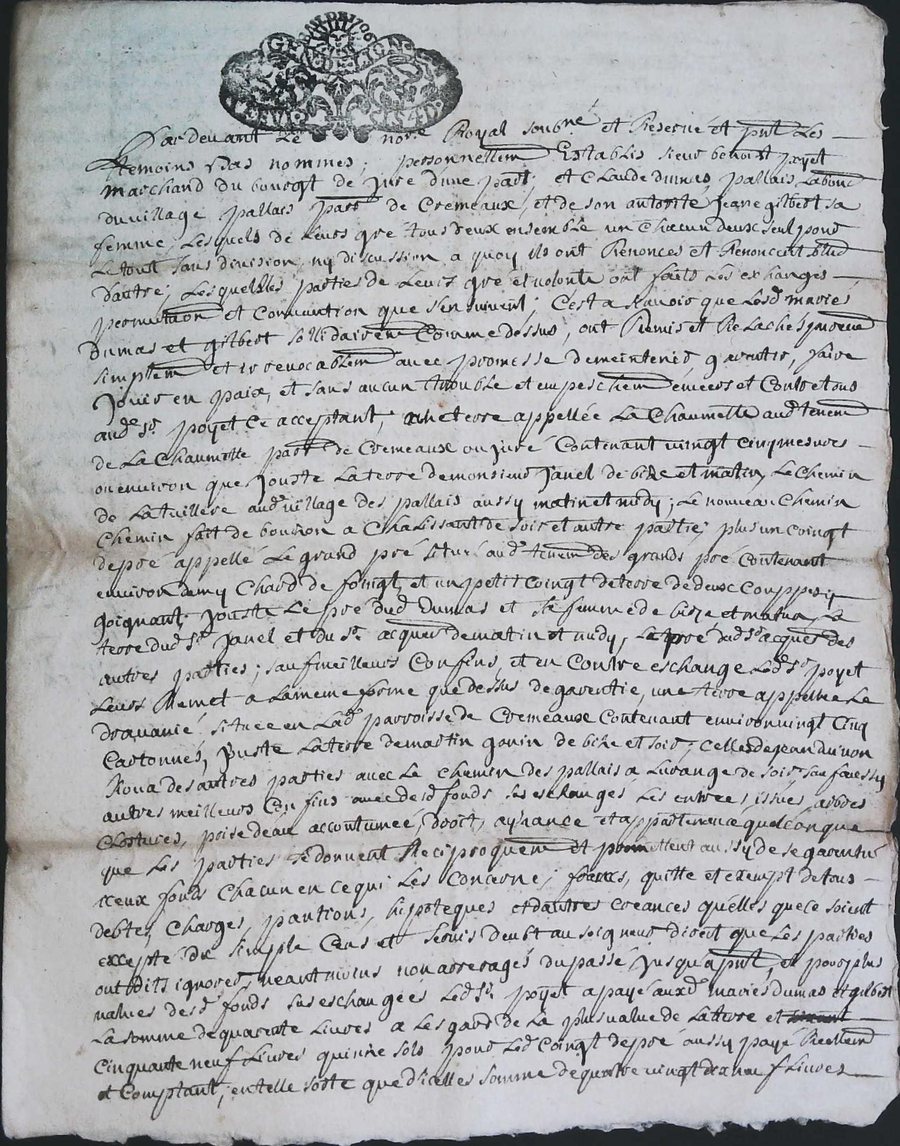 GEN DE LION
SIS 4 D
Par devant Le no.re Royal soub.né et Reservé et pnt Les
temoins bas nommes; personnellem Establis sieur benoist poyet
marchand du bourgt de jure d'une part; et Claude dumas pallais Labour
du village pallais parr de Cremeaux, et de son autorité jeane gilbert sa
femme, Lesquels de Leurs gré tous deux ensemble un Chacun deux seul pour
Le tout sans division ny discussion a quoy ils ont Renoncés et Renoncent
dautre; Lesquelles parties de Leurs gré et volonté ont faits Les exchanges
permutaon et Convantion que s'ensuivent; C'est a scavoir que Lesd mariés
Dumas et gilbert sollidairem Comme dessus, ont Remis et Relachés purem
simplem et irrevocablem avec promesse de meintenir garentir, faire
jouir en paix, et sans aucun trouble et empeschem envers et Contre tous
aud sr poyet Ce acceptant, une terre appellée La Chaumette aud tenem
de La Chaumette parr de Cremeaux ou juré Contenant vingt cinq mesures
ou environ que jouste La terre de monsieur janel de bize et matin, Le Chemin
de La tuillere aud village des pallais aussy matin et midy; Le nouveau Chemin
Chemin fait de bouron a Chalissant de soir et autre partie; plus un Coingt
de pré appellé Le grand pré situé aud tenem des grands pré Contenant
environ demy Chard de foingt, et un petit Coingt de terre de deux Couppes y
joignant, jouste Le pré dud Dumas et sa femme de bize et matin, La
terre dud sr janel et du sr acquer de matin et midy, Le pré dud sr acquer des
autres parties; sauf meilleurs Confins, et en Contre eschange Led sr poyet
Leurs Remet a La meme forme que dessus de garentie, une terre appellée Le
situee en Lad parroisse de Cremeaux Contenant environ vingt Cinq
Cartonnés, juste La terre de martin gonin de bize et soir, celle de jean
des autres parties avec Le Chemin des pallais a Lurange de soir, sauf aussy
autres meilleurs Confins avec desd fonds sus eschangés Les entrées, issues, arbres
Clostures, prise d'eau accoutumée, droit, aysance et appartenance quelconque
que Les parties se donnent Reciproquem et promettent aussy de se garentir
iceux fonds Chacun en ce qui Les Concerne; francs, quitte et exempt de tous
debtes, Charges, pantions, hipoteques et d'autres creances qu'elles que ce soient
excepté du simple Cens et servis deubt au seigneur direct que Les parties
ont dits ignorer, neantmoins non arreragés du passé jusqu'a pnt, et pour plus
values desd fonds sus eschangées Led sr poyet a payé auxd mariés dumas et gilbert
La somme de quarente Livres a Les gard de La plus value de La terre et
Cinquante neuf Livres quinze sols pour Led Coingt de pré aussy payé Reellem
et Comptant, en telle sorte que d'icelles somme de quatre vingt dix neuf Livres